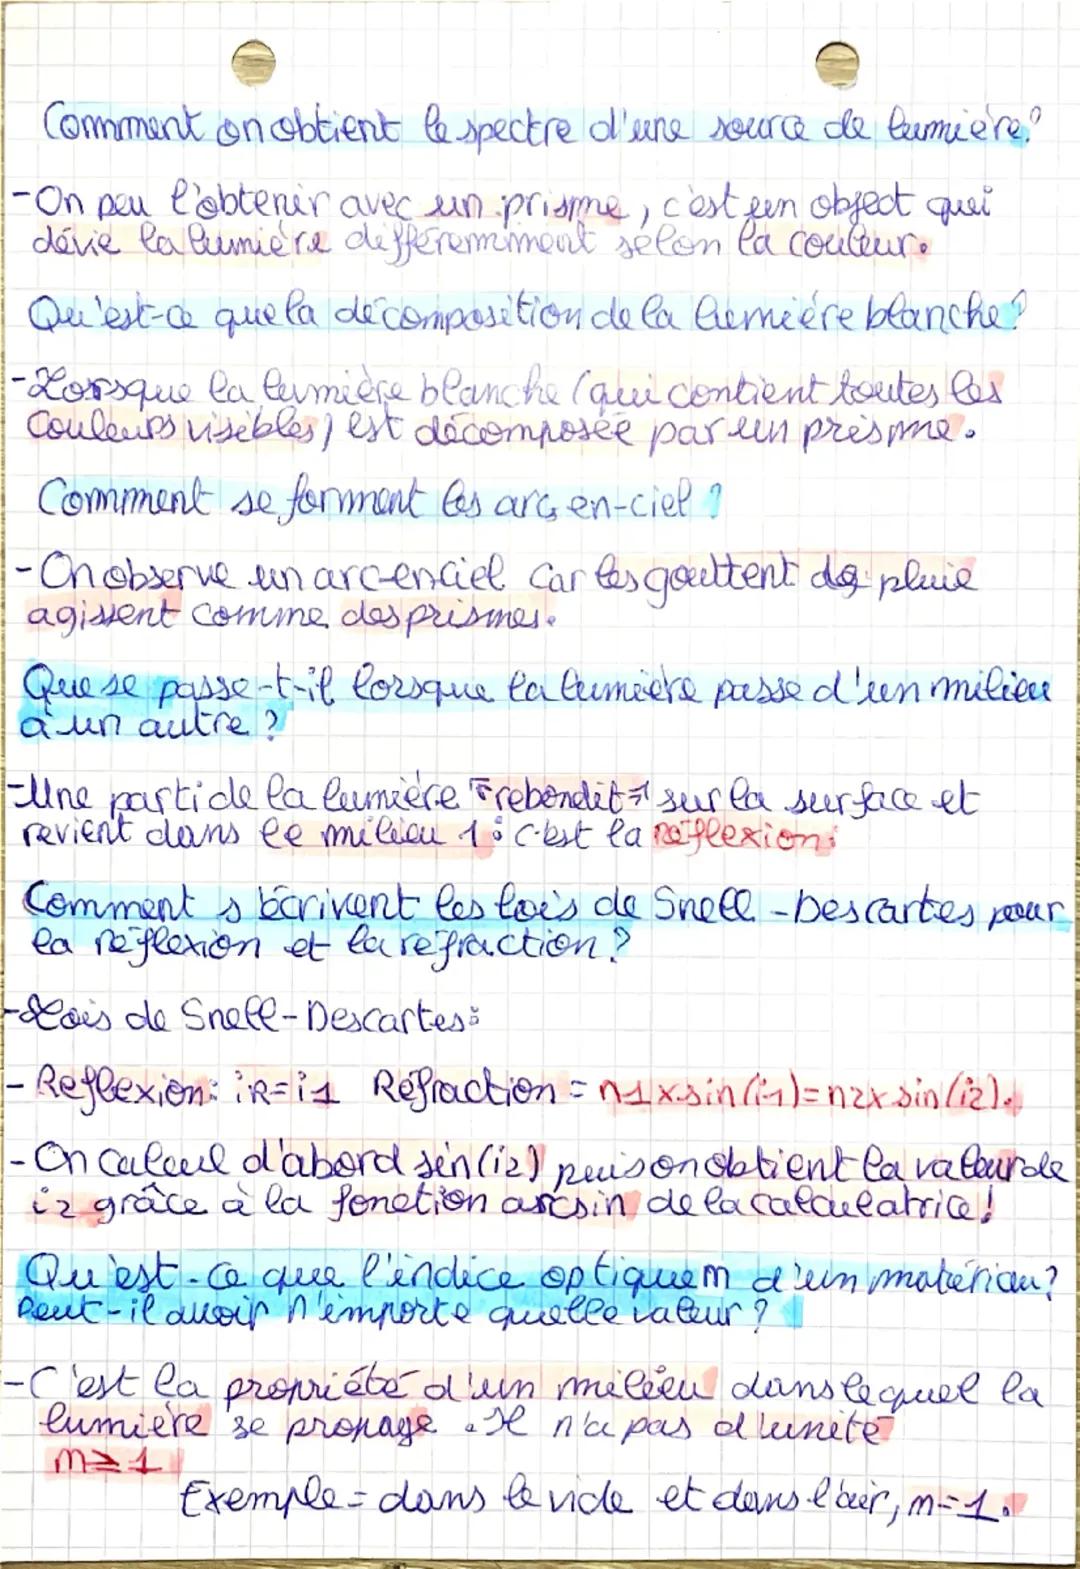 Comment on obtient le spectre d'une source de lumière?
-On peu l'obtenir avec un prisme, c'est un object qui
dévie la lumière différemment selon la couleur.
Qu'est-ce que la décomposition de la lumière blanche?
-Lorsque la lumière blanche (qui contient toutes les
couleurs visibles) est décomposée par un prisme.
Comment se forment les arc en-ciel ?
-On observe un arc-en ciel car les gouttent de pluie
agissent comme des prismes.
Que se passe-t-il lorsque la lumière passe d'un milieu
à un autre ?
-Une parti de la lumière "rebondit" sur la surface et
revient dans le milieu 1: c'est la réflexion:
Comment s'écrivent les lois de Snell-Descartes pour
la réflexion et la réfraction ?
-Lois de Snell-Descartes:
-Reflexion: iR=i1 Réfraction = n1 x sin(i1)=n2 x sin(i2).
-On calcul d'abord sin(i2) puis on obtient la valeur de
i2 grâce à la fonction arcsin de la calculatrice!
Qu'est-ce que l'indice optique n d'un matériau?
Peut-il avoir n'importe quelle valeur ?
-C'est la propriété d'un milieu dans lequel la
lumière se propage. Il n'a pas d'unité
n≥1
Exemple = dans le vide et dans l'air, n=1.